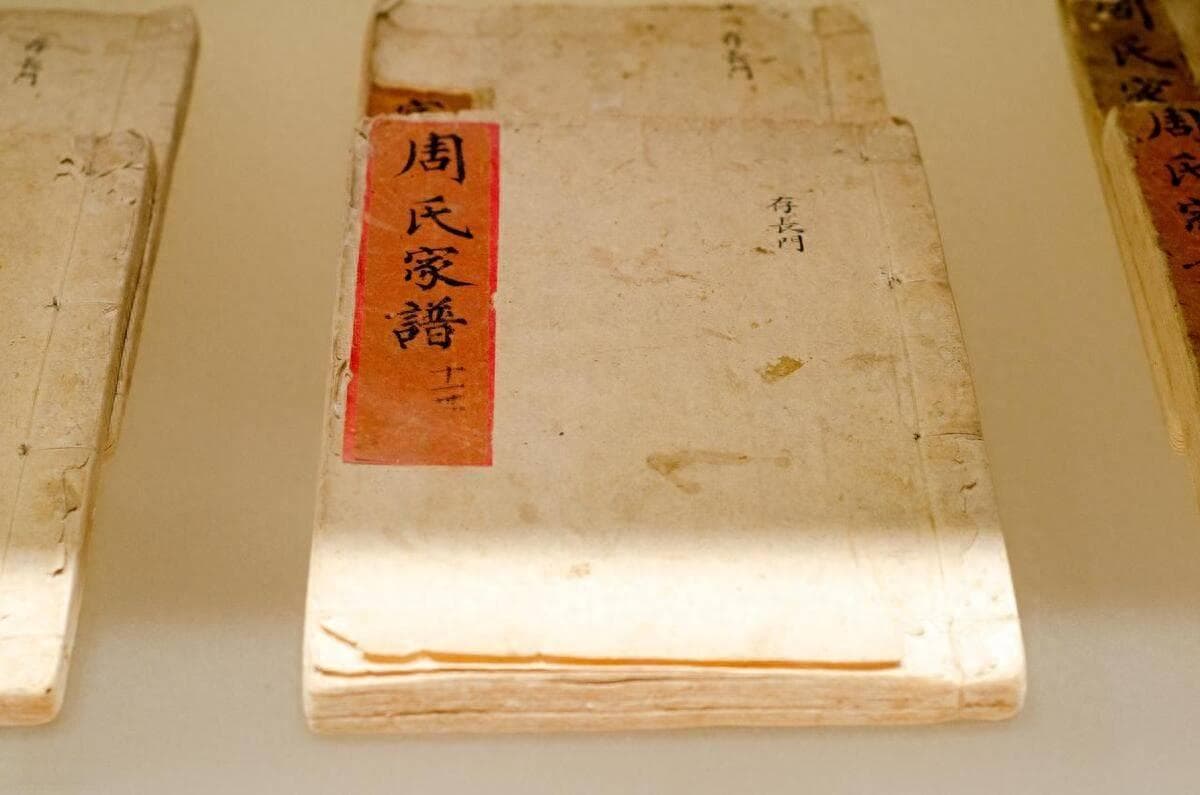 存長門
存長門
周氏家
周氏家譜
十一世
存長門
周氏家